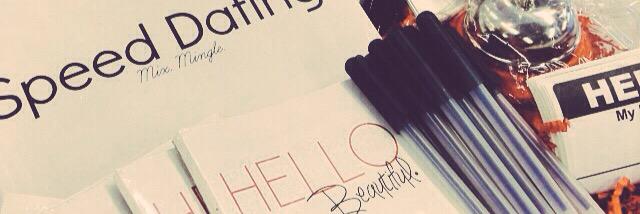 Speed Dating
Mix. Mingle.
HELLO
Beautiful.
H
HE
My